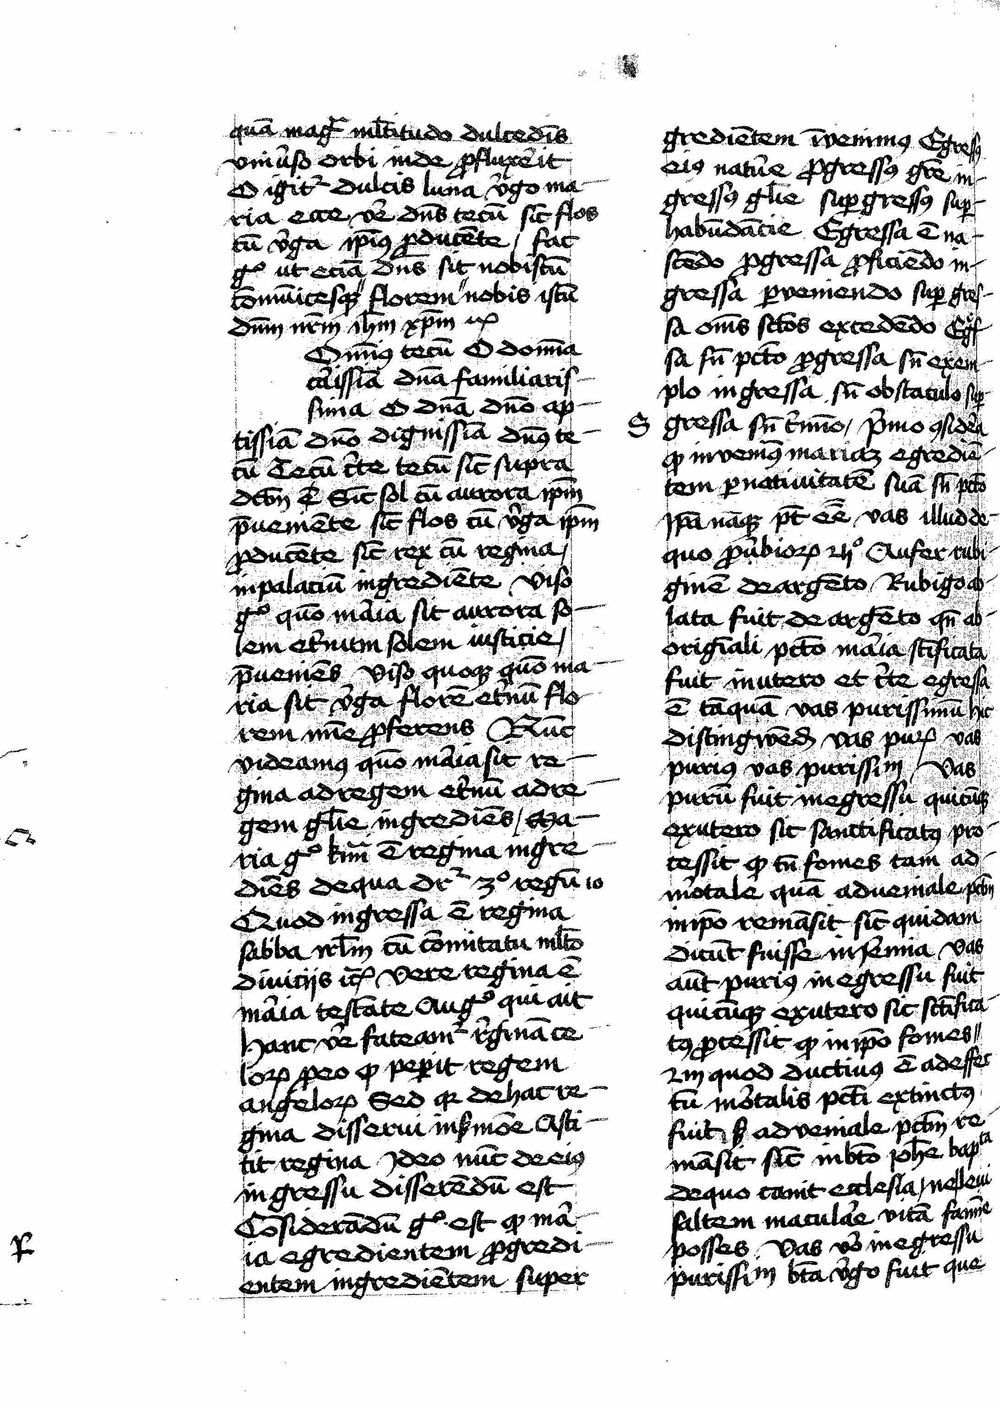 quā mag̃ ml̄titudo dulcedīs
vniūso orbi inde ꝓfluxēit
O igit᷑ dulcis luna v̄go ma-
ria ecce vē dn̄s tecū sic̄ flos
cū v̄ga ip̄iꝰ ꝓducēte / fac
gͦ ut eciā dn̄s sit nobiscū
cōmūicesqꝫ florem nobis istū
dn̄m nr̄m ih̄m xp̄m
Dn̄iꝰ tecū O domīa
cārissīā dn̄a familiaris-
sima O dn̄a dn̄o ap-
tissīā dn̄o dignissīā dn̄ꝰ te-
cū Tecū c̄te tecū sic̄ supra
dc̄m ē Sic̄ sol cū aurora ip̄m
p̄uemēte sic̄ flos cū v̄ga ip̄m
ꝓducēte sic̄ rex cū regina /
in palaciū ingrediēte Viso
gͦ quō māia sit aurora so-
lem et̄num solem iusticie /
p̄ueniēs viso quoqꝫ quō ma-
ria sit v̄ga florē et̄nū flo-
rem ꝓferens Nūc
videamꝰ quō māia sit re-
gina ad regem et̄nū ad re-
gem gl̄ie ingrediēs / Ma-
ria gͦ ē regina ingre-
diēs de qua dr᷑ 3º regū 10
Quod ingressa ē regina
sabba irl̄m cū cōmitatu ml̄to
diuicijs ic̄ Vere regina ē
māia testāte Augꝰ qui ait
Hanc vē fateam᷑ r̄ginā ce-
loꝝ ꝓ eo qꝫ pep̄it regem
angeloꝝ Sed qꝛ de hac re-
gina disserui in s̄mōe Asti-
tit regina Ideo nūc de eiꝰ
ingressu disserēdū est
Cōsiderādū gͦ est qꝫ mā-
ia egredientem ꝓgredi-
entem ingrediētem super
grediētem īvenimꝰ Egressꝰ
eiꝰ natūe ꝓgressꝰ gr̄e in-
gressꝰ gl̄ie sup̱gressꝰ sup̱-
habūdācie Egressa ē na-
scēdo ꝓgressa ꝓficiēdo in-
gressa p̱veniendo sup̱ gres-
sa om̄s sc̄tos excedēdo Egr̄-
sa sn̄ pc̄to ꝓgressa sn̄ exem-
plo ingressa sn̄ obstaculo sup̱
gressa sn̄ t̄mīo / P̄mo ꝯsidera
qꝫ invenimꝰ mariaꝫ egrediē-
tem p̱ natiuitatē suā sn̄ pc̄to
Ip̄a nāqꝫ pt̄ eē̄ vas illud de
quo ꝓūbioꝝ Aufer rubi-
ginē de argēto Rubigo ab-
lata fuit de argēto qn̄ ab
origīali pc̄to māia sc̄tificata
fuit in utero et c̄te egressa
ē tāquā vas purissimū hic
distingwēd vas puꝝ vas
puriꝰ vas purissīm Vas
purū fuit in egressu quicūqꝫ
ex utero sic sanctificatꝰ pro-
cessit qꝫ tn̄ fomes tam ad
mōtale quā ad veniale pc̄m
in ip̄o remāsit sic̄ quidam
dicūt fuisse in Vas
aūt puriꝰ in egressu fuit
quicūqꝫ ex utero sic sc̄tifica-
tꝰ ꝓcessit qꝫ in ip̄o fomes
quod ductiuꝰ ē ad effec
tū mōtalis pc̄ti extinctꝰ
fuit ad veniale pc̄m re-
māsit sic̄ in bt̄o Ioh̄e bapta
de quo canit ecclesia /
saltem maculāe vitā famīe
posses Vas vō in egressu
purissīm bt̄a v̄go fuit que